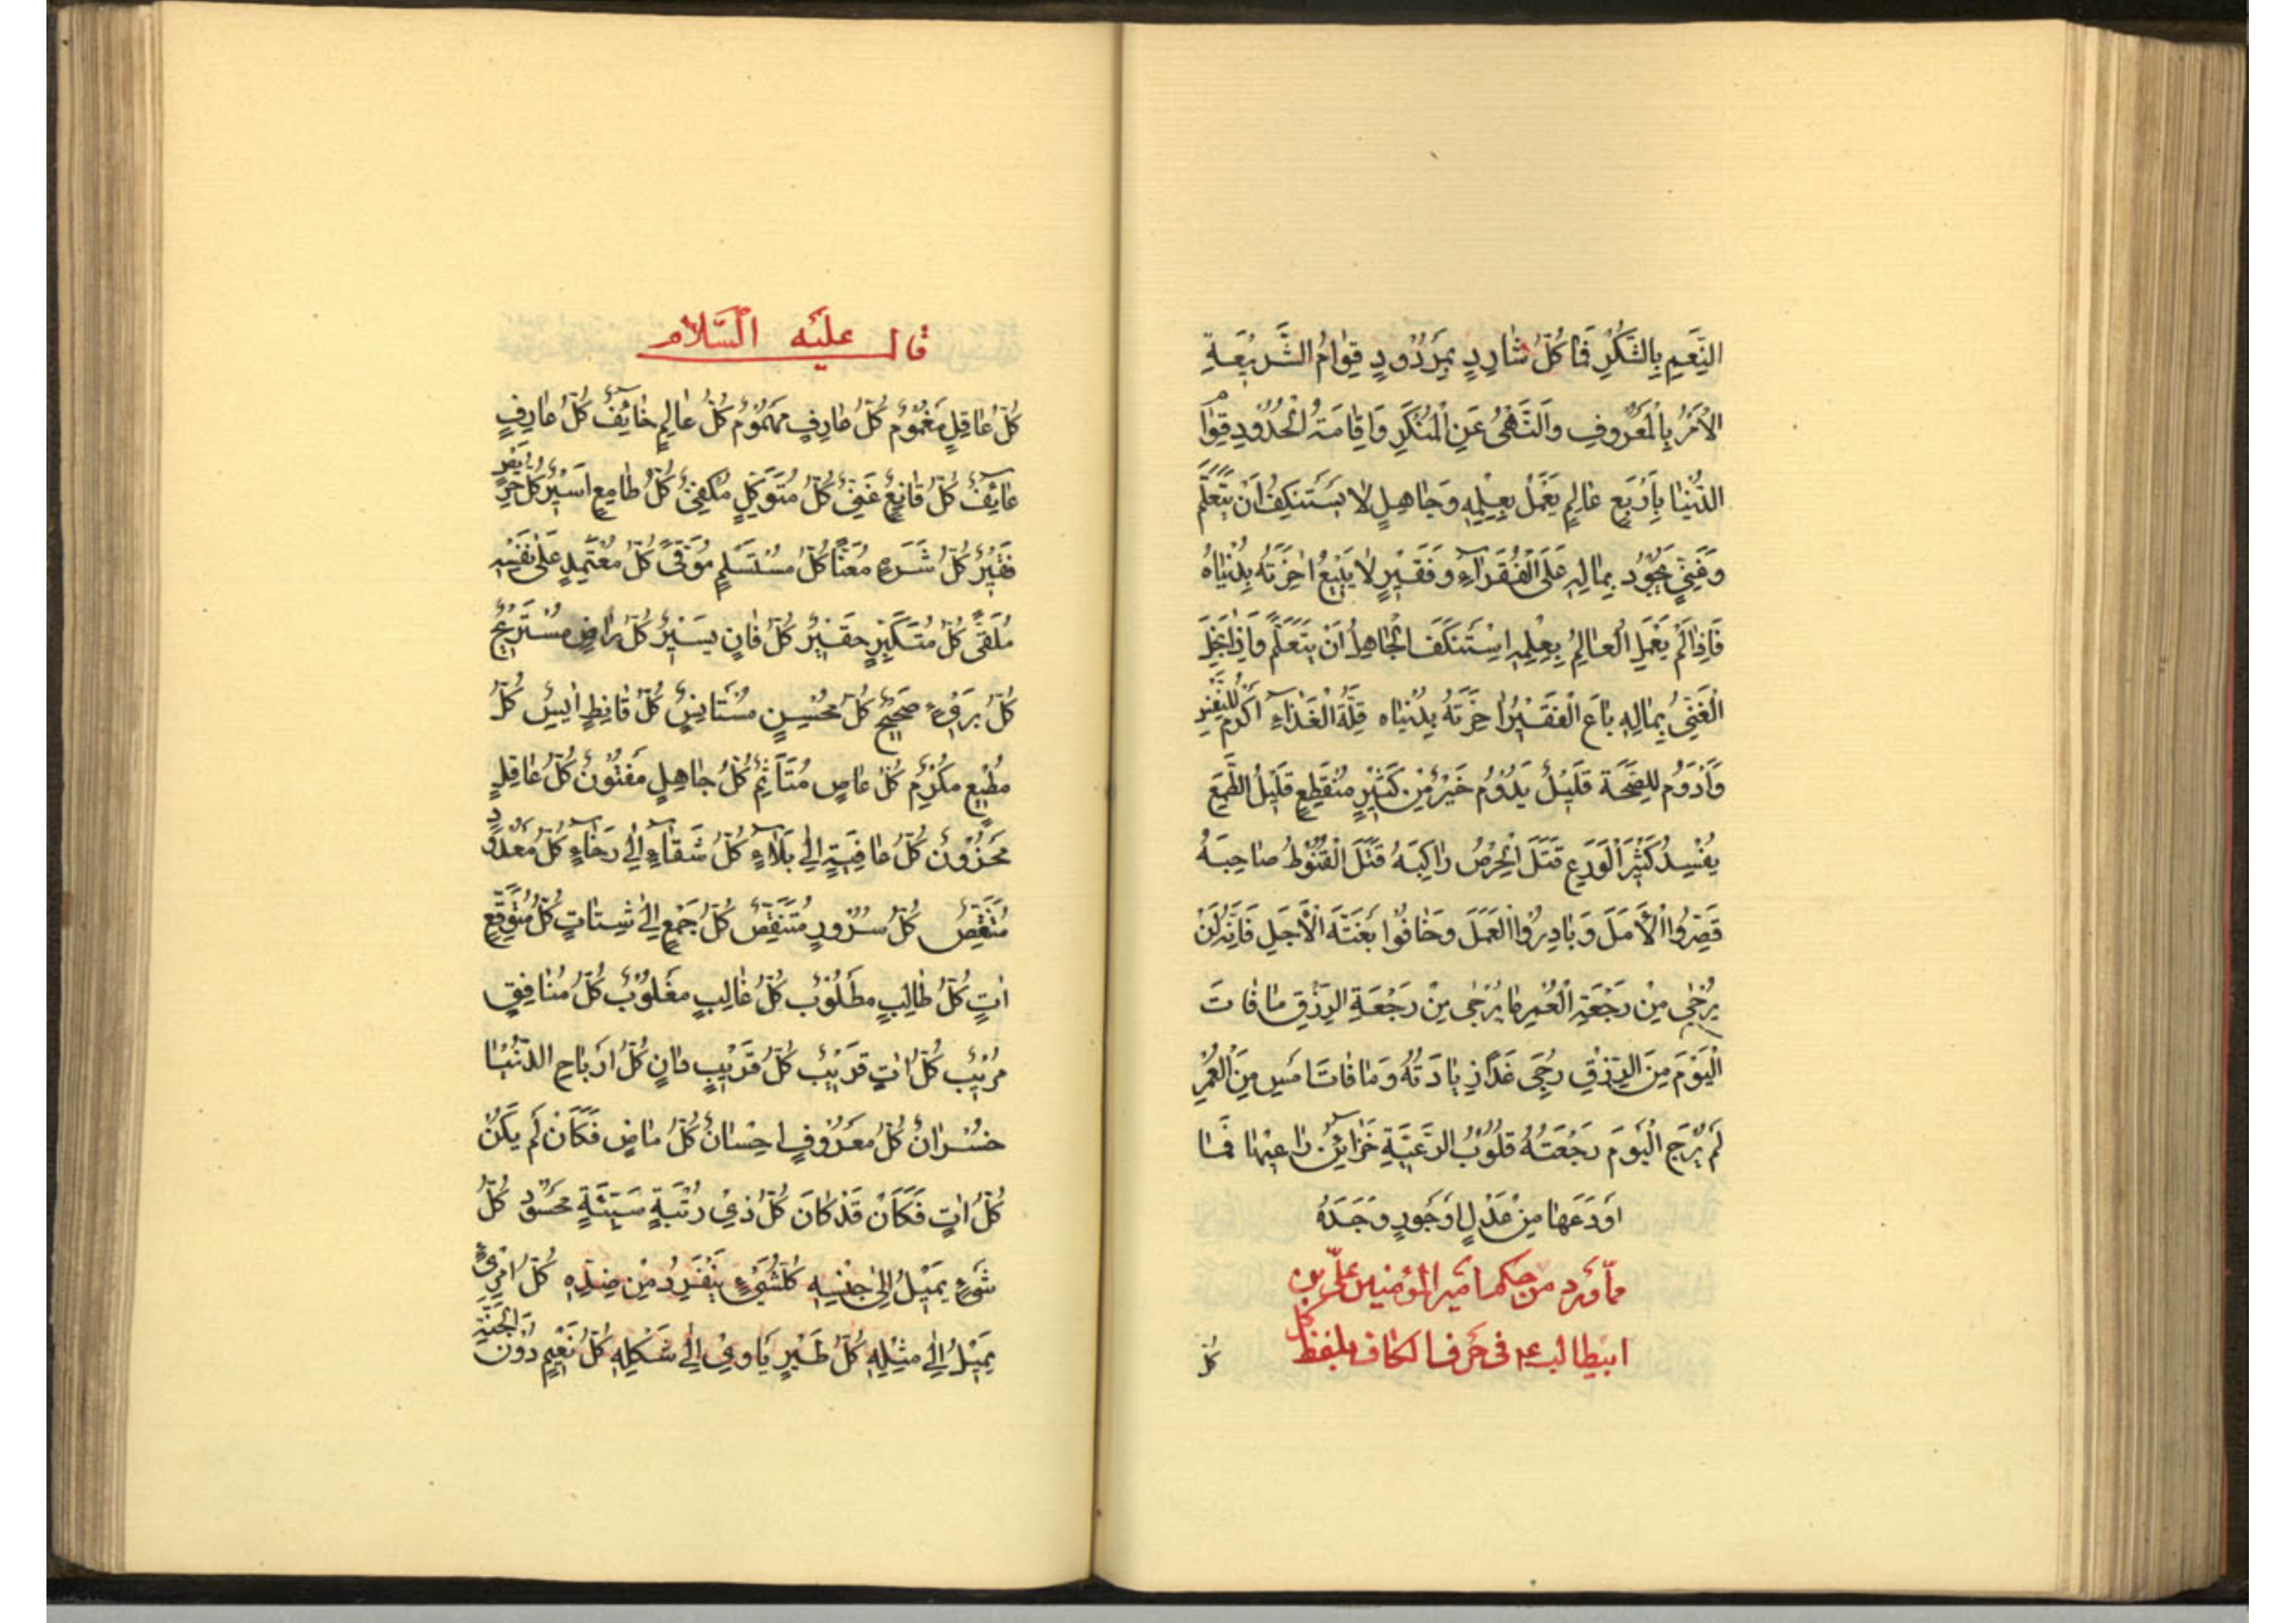 النِّعَمِ بِالشُّكْرِ فَمَا كُلُّ شَارِدٍ بِمَرْدُودٍ قِوَامُ الشَّرِيعَةِ
الْأَمْرُ بِالْمَعْرُوفِ وَالنَّهْيُ عَنِ الْمُنْكَرِ وَإِقَامَةُ الْحُدُودِ قِوَامُ
الدُّنْيَا بِأَرْبَعٍ عَالِمٍ يَعْمَلُ بِعِلْمِهِ وَجَاهِلٍ لَا يَسْتَنْكِفُ أَنْ يَتَعَلَّمَ
وَغَنِيٍّ يَجُودُ بِمَالِهِ عَلَى الْفُقَرَاءِ وَفَقِيرٍ لَا يَبِيعُ آخِرَتَهُ بِدُنْيَاهُ
فَإِذَا لَمْ يَعْمَلِ الْعَالِمُ بِعِلْمِهِ اسْتَنْكَفَ الْجَاهِلُ أَنْ يَتَعَلَّمَ وَإِذَا بَخِلَ
الْغَنِيُّ بِمَالِهِ بَاعَ الْفَقِيرُ آخِرَتَهُ بِدُنْيَاهُ قِلَّةُ الْغَذَاءِ أَكْرَمُ لِلنَّفْسِ
وَأَدْوَمُ لِلصِّحَّةِ قَلِيلٌ يَدُومُ خَيْرٌ مِنْ كَثِيرٍ مُنْقَطِعٍ قَلِيلُ الطَّمَعِ
يُفْسِدُ كَثِيرَ الْوَرَعِ قَتَلَ الْحِرْصُ رَاكِبَهُ قَتَلَ الْقُنُوطُ صَاحِبَهُ
قَصِّرُوا الْأَمَلَ وَبَادِرُوا الْعَمَلَ وَخَافُوا بَغْتَةَ الْأَجَلِ فَإِنَّهُ لَنْ
يُرْجَى مِنْ رَجْعَةِ الْعُمْرِ مَا يُرْجَى مِنْ رَجْعَةِ الرِّزْقِ مَا فَاتَ
الْيَوْمَ مِنَ الرِّزْقِ رُجِيَ غَدًا زِيَادَتُهُ وَمَا فَاتَ أَمْسِ مِنَ الْعُمْرِ
لَمْ يُرْجَ الْيَوْمَ رَجْعَتُهُ قُلُوبُ الرَّعِيَّةِ خَزَائِنُ رَاعِيهَا فَمَا
أَوْدَعَهَا مِنْ عَدْلٍ أَوْ جَوْرٍ وَجَدَهُ
مما ورد من حكم أمير المؤمنين علي بن
ابيطالب ع في حرف الكاف بلفظ كل
كُلُّ
قال عليه السلام
كُلُّ عَاقِلٍ مَغْمُومٌ كُلُّ عَارِفٍ مَهْمُومٌ كُلُّ عَالِمٍ خَائِفٌ كُلُّ عَارِفٍ
عَائِفٌ كُلُّ قَانِعٍ غَنِيٌّ كُلُّ مُتَوَكِّلٍ مَكْفِيٌّ كُلُّ طَامِعٍ أَسِيرٌ كُلُّ حَرِيصٍ
فَقِيرٌ كُلُّ شَرِهٍ مُعَنًّى كُلُّ مُسْتَسْلِمٍ مُوَقًّى كُلُّ مُعْتَمِدٍ عَلَى نَفْسِهِ
مُلْقًى كُلُّ مُتَكَبِّرٍ حَقِيرٌ كُلُّ فَانٍ يَسِيرٌ كُلُّ رَاضٍ مُسْتَرِيحٌ
كُلُّ بَرِيءٍ صَحِيحٌ كُلُّ مُحْسِنٍ مُسْتَأْنِسٌ كُلُّ قَانِطٍ آيِسٌ كُلُّ
مُطِيعٍ مُكْرَمٌ كُلُّ عَاصٍ مُتَأَثِّمٌ كُلُّ جَاهِلٍ مَفْتُونٌ كُلُّ عَاقِلٍ
مَحْزُونٌ كُلُّ عَافِيَةٍ إِلَى بَلَاءٍ كُلُّ شَقَاءٍ إِلَى رَخَاءٍ كُلُّ مَعْدُودٍ
مُنْتَقِصٌ كُلُّ سُرُورٍ مُتَنَغِّصٌ كُلُّ جَمْعٍ إِلَى شَتَاتٍ كُلُّ مُتَوَقَّعٍ
آتٍ كُلُّ طَالِبٍ مَطْلُوبٌ كُلُّ غَالِبٍ مَغْلُوبٌ كُلُّ مُنَافِقٍ
مُرِيبٌ كُلُّ آتٍ قَرِيبٌ كُلُّ قَرِيبٍ دَانٍ كُلُّ أَرْبَاحِ الدُّنْيَا
خُسْرَانٌ كُلُّ مَعْرُوفٍ إِحْسَانٌ كُلُّ مَاضٍ فَكَأَنْ لَمْ يَكُنْ
كُلُّ آتٍ فَكَأَنْ قَدْ كَانَ كُلُّ ذِي رُتْبَةٍ سَنِيَّةٍ مَحْسُودٌ كُلُّ
شَيْءٍ يَمِيلُ إِلَى جِنْسِهِ كُلُّ شَيْءٍ يَنْفِرُ مِنْ ضِدِّهِ كُلُّ امْرِئٍ
يَمِيلُ إِلَى مِثْلِهِ كُلُّ طَيْرٍ يَأْوِي إِلَى شَكْلِهِ كُلُّ نَعِيمٍ دُونَ الْجَنَّةِ